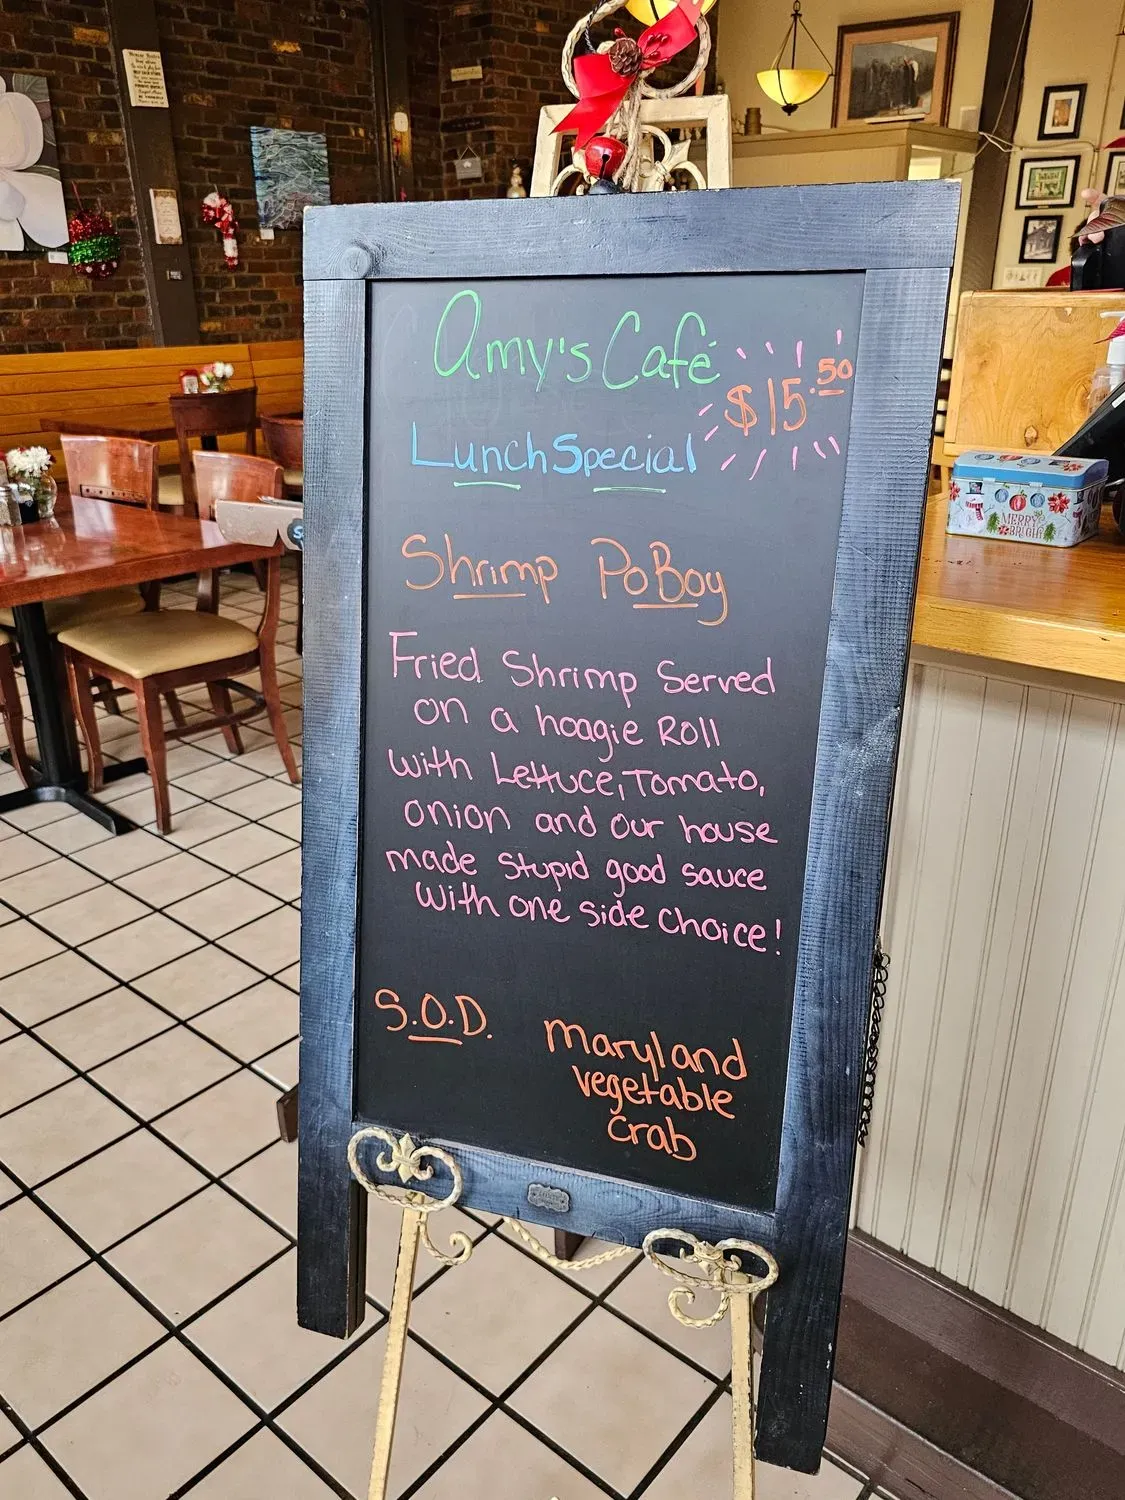 Amy's Café
$15.50
Lunch Special
Shrimp PoBoy
Fried Shrimp Served
on a hoagie Roll
with Lettuce, Tomato,
onion and our house
made stupid good sauce
with one side choice!
S.O.D.
Maryland
vegetable
crab
MERRY
BRIGHT